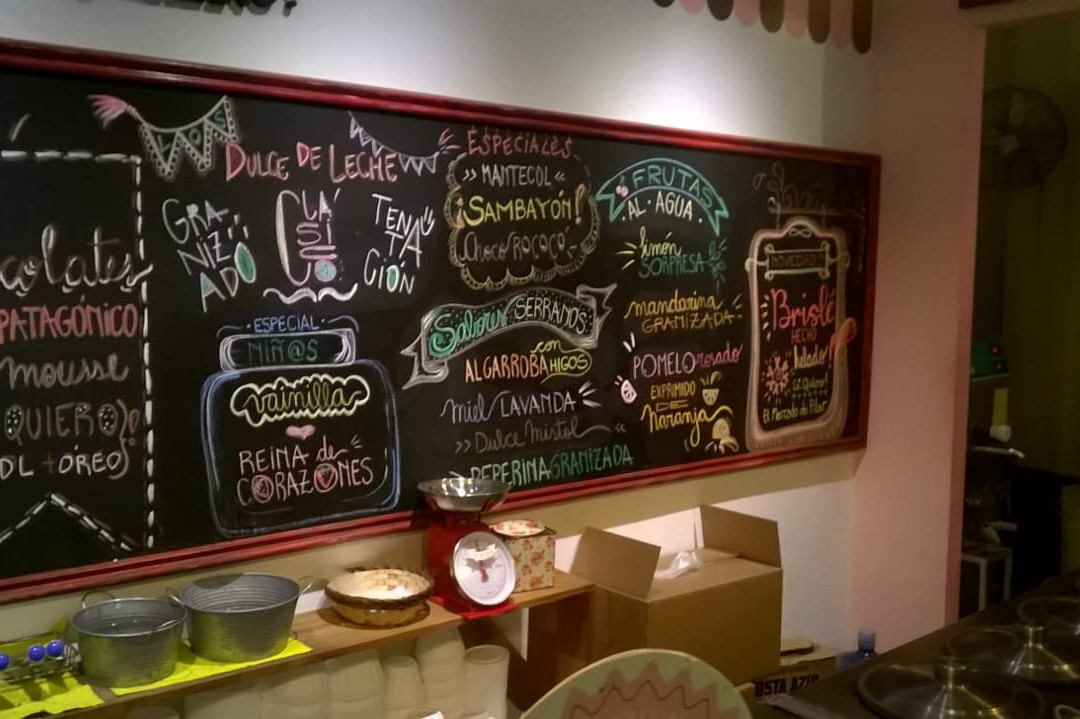 colates
PATAGÓNICO
mousse
QUIERO
DL + ÓREO
LOS
DULCE DE LECHE
GRANIZADO
CLÁSICO
TENTACIÓN
ESPECIAL
NIÑ@S
vainilla
REINA de
CORAZONES
ESPECIALES
MANTECOL
¡SAMBAYÓN!
Choco ROCOCÓ
Sabores SERRANOS
ALGARROBA con HIGOS
miel LAVANDA
Dulce Mistol
PEPERINA GRANIZADA
FRUTAS
AL AGUA
limón
SORPRESA
mandarina
GRANIZADA
POMELO rosado
EXPRIMIDO
DE
Naranja
NOVEDAD
Brislé
HECHO
helado!
Sí, Quiero!
El Mercado de Pilar
USTA AZUL